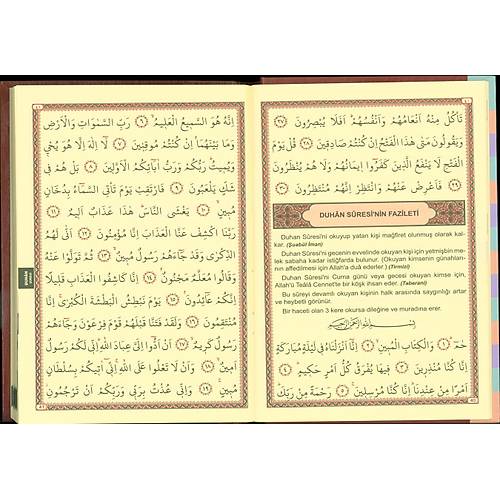 تَأْكُلُ مِنْهُ اَنْعَامُهُمْ وَاَنْفُسُهُمْ اَفَلَا يُبْصِرُونَ ﴿٢٧﴾
وَيَقُولُونَ مَتٰى هٰذَا الْفَتْحُ اِنْ كُنْتُمْ صَادِقِينَ ﴿٢٨﴾ قُلْ يَوْمَ
الْفَتْحِ لَا يَنْفَعُ الَّذِينَ كَفَرُٓوا اِيمَانُهُمْ وَلَا هُمْ يُنْظَرُونَ
﴿٢٩﴾ فَاَعْرِضْ عَنْهُمْ وَانْتَظِرْ اِنَّهُمْ مُنْتَظِرُونَ ﴿٣٠﴾
DUHÂN SÛRESİ'NİN FAZİLETİ
Duhan Sûresi'ni okuyup yatan kişi mağfiret olunmuş olarak kal-
kar. (Şuabül İman)
Duhan Sûresi'ni gecenin evvelinde okuyan kişi için yetmişbin me-
lek sabaha kadar istiğfarda bulunur. (Okuyan kimsenin günahları-
nın affedilmesi için Allah'a duâ ederler.) (Tirmizi)
Duhan Sûresi'ni Cuma günü veya gecesi okuyan kimse için,
Allah'ü Teâlâ Cennette bir köşk ihsan eder. (Taberani)
Bu sûreyi devamlı okuyan kişinin halk arasında saygınlığı artar
ve heybetli görünür.
Bir haceti olan 3 kere okursa dileğine ve muradına erer.
بِسْمِ اللّٰهِ الرَّحْمٰنِ الرَّحِيمِ
حٰمٓ ﴿١﴾ وَالْكِتَابِ الْمُبِينِ ﴿٢﴾ اِنَّٓا اَنْزَلْنَاهُ فِى لَيْلَةٍ مُبَارَكَةٍ
اِنَّا كُنَّا مُنْذِرِينَ ﴿٣﴾ فِيهَا يُفْرَقُ كُلُّ اَمْرٍ حَكِيمٍ ﴿٤﴾
اَمْرًا مِنْ عِنْدِنَا اِنَّا كُنَّا مُرْسِلِينَ ﴿٥﴾ رَحْمَةً مِنْ رَبِّكَ
اِنَّهُ هُوَ السَّمِيعُ الْعَلِيمُ ﴿٦﴾ رَبِّ السَّمٰوَاتِ وَالْاَرْضِ
وَمَا بَيْنَهُمَا اِنْ كُنْتُمْ مُوقِنِينَ ﴿٧﴾ لَٓا اِلٰهَ اِلَّا هُوَ يُحْيٖى
وَيُمِيتُ رَبُّكُمْ وَرَبُّ اٰبَٓائِكُمُ الْاَوَّلِينَ ﴿٨﴾ بَلْ هُمْ فِى
شَكٍّ يَلْعَبُونَ ﴿٩﴾ فَارْتَقِبْ يَوْمَ تَأْتِى السَّمَٓاءُ بِدُخَانٍ
مُبِينٍ ﴿١٠﴾ يَغْشَى النَّاسَ هٰذَا عَذَابٌ اَلِيمٌ ﴿١١﴾
رَبَّنَا اكْشِفْ عَنَّا الْعَذَابَ اِنَّا مُؤْمِنُونَ ﴿١٢﴾ اَنّٰى لَهُمُ
الذِّكْرٰى وَقَدْ جَٓاءَهُمْ رَسُولٌ مُبِينٌ ﴿١٣﴾ ثُمَّ تَوَلَّوْا عَنْهُ
وَقَالُوا مُعَلَّمٌ مَجْنُونٌ ﴿١٤﴾ اِنَّا كَاشِفُوا الْعَذَابِ قَلِيلًا
اِنَّكُمْ عَٓائِدُونَ ﴿١٥﴾ يَوْمَ نَبْطِشُ الْبَطْشَةَ الْكُبْرٰى اِنَّا
مُنْتَقِمُونَ ﴿١٦﴾ وَلَقَدْ فَتَنَّا قَبْلَهُمْ قَوْمَ فِرْعَوْنَ وَجَٓاءَهُمْ
رَسُولٌ كَرِيمٌ ﴿١٧﴾ اَنْ اَدُّٓوا اِلَىَّ عِبَادَ اللّٰهِ اِنّٖى لَكُمْ رَسُولٌ
اَمِينٌ ﴿١٨﴾ وَاَنْ لَا تَعْلُوا عَلَى اللّٰهِ اِنّٖٓى اٰتٖيكُمْ بِسُلْطَانٍ
مُبِينٍ ﴿١٩﴾ وَاِنّٖى عُذْتُ بِرَبّٖى وَرَبِّكُمْ اَنْ تَرْجُمُونِ